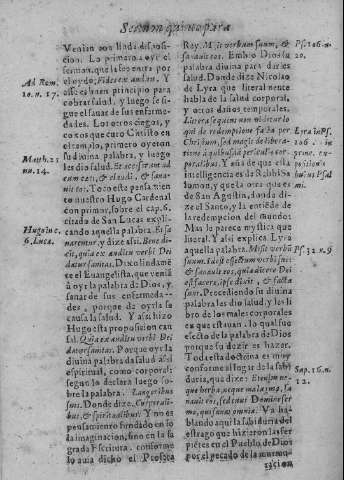 Sermon quinto para
Venian con linda disposi-
cion. Lo primero a oyr el
sermon, que la fee entra por
el oydo; Fides ex auditu. Y
assi es buen principio para
cobrar salud, y luego se si-
gue el sanar de sus enferme-
dades. Los otros ciegos, y
coxos que curo Christo en
el templo, primero oyeron
su divina palabra, y luego
les dio salud. Et accesserunt ad
eum caeci, & claudi, & sana-
uit eos. Todo esta pensamien
to nuestro Hugo Cardenal
con primor, sobre el cap. 6.
citado de San Lucas expli-
cando aquella palabra. Et sa-
narentur, y dize assi. Bene di-
cit, quia ex auditu verbi Dei
datur sanitas. Dixo lindamē
te el Euangelista, que venià
à oyr la palabra de Dios, y
sanar de sus enfermeda-
des, porque de oyrla se
causa la salud. Y assi hizo
Hugo esta proposicion cau
sal. Quia ex auditu verbi Dei
datur sanitas. Porque oyr la
divina palabra da salud assi
espiritual, como corporal:
segun lo declara luego so-
bre la palabra. Languoribus
suis. Donde dize. Corporali-
bus, & spiritualibus. Y no es
pensamiento fundado en so
la imaginacion, sino en la sa
grada Escritura. conforme
lo auia dicho el Profeta
Rey. Misit verbum suum, &
sanauit eos. Embiò Dios su
palabra divina para darles
salud. Donde dize Nicolao
de Lyra que literalmente
habla de la salud corporal,
y otros daños temporales.
Litera sequens non videtur lo
qui de redemptione facta per
Christum, sed magis de libera-
tione à
corporali-
bus. Y añade que esta
inteligencia es de Rabbi Sa
lomon, y que la otra que es
de San Agustin, donde di-
ze el Santo, y la entiēde de
la redempcion del mundo:
Mas lo parece mystica que
literal. Y assi explica Lyra
aquella palabra. Misit verbū
suum. Id est effectum verbi sui:
& sanauit eos, quia dicere Dei
est facere, ipse dixit, & facta
sunt. Procediendo su divina
palabra les dio salud, y les li
brò de los males corporales
en que estavan. lo qual fue
efecto de la palabra de Dios
porque su dezir es hazer.
Toda esta doctrina es muy
conforme al lugar de la Sabi
duria, que dize: Etenim ne-
que herba, neque malagma sa-
nauit eos, sed tuus Domine ser
mo, qui sanat omnia. Va ha-
blando aqui la sabiduria del
estrago que hizieron las ser
piētes en el Pueblo de Dios
por el pecado de la murmu-
racion
Ad Rom.
10. n. 17.
Matth. 21
nu. 14.
Hugo in c.
6. Luca.
Ps. 106. n.
20.
Lyra in Ps.
106. in
Ps. 32. n. 9
Sap. 16. n.
12.